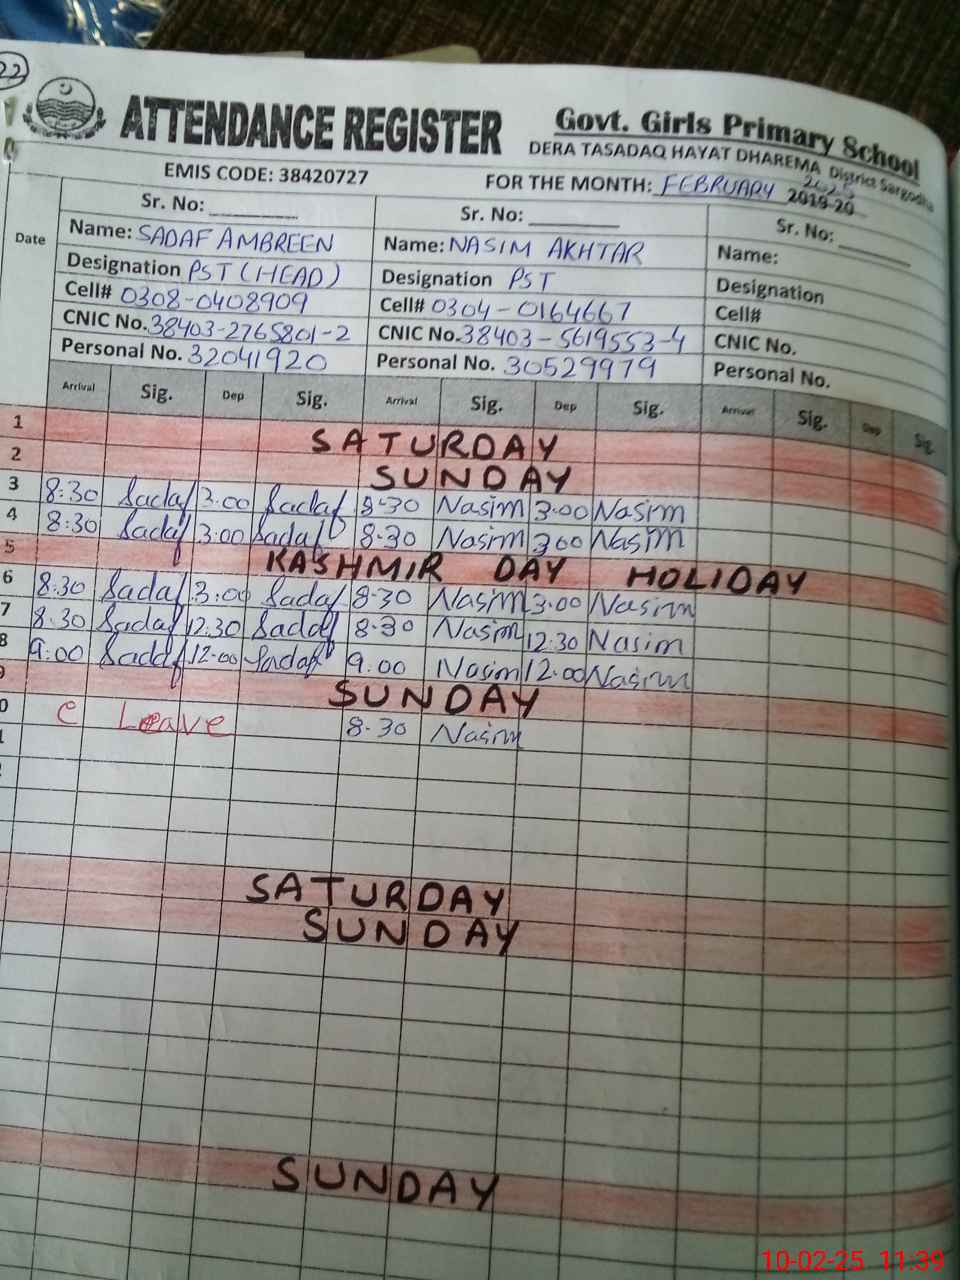 22
ATTENDANCE REGISTER
Govt. Girls Primary School
DERA TASADAQ HAYAT DHAREMA District Sargodha
EMIS CODE: 38420727
FOR THE MONTH: FEBRUARY 2025 2019-20
Date
Sr. No: Sr. No: Sr. No:
Name: SADAF AMBREEN Name: NASIM AKHTAR Name:
Designation PST (HEAD) Designation PST Designation
Cell# 0308-0408909 Cell# 0304-0164667 Cell#
CNIC No. 38403-2765801-2 CNIC No. 38403-5619553-4 CNIC No.
Personal No. 32041920 Personal No. 30529979 Personal No.
Arrival Sig. Dep Sig. Arrival Sig. Dep Sig. Arrival Sig. Dep Sig.
1 SATURDAY
2 SUNDAY
3 8:30 Sadaf 3.00 Sadaf 8-30 Nasim 3.00 Nasim
4 8:30 Sadaf 3.00 Sadaf 8-30 Nasim 3 00 Nasim
5 KASHMIR DAY HOLIDAY
6 8:30 Sadaf 3.00 Sadaf 8-30 Nasim 3.00 Nasim
7 8.30 Sadaf 12.30 Sadaf 8-30 Nasim 12:30 Nasim
8 9.00 Sadaf 12.00 Sadaf 9.00 Nasim 12.00 Nasim
9 SUNDAY
0 C Leave 8-30 Nasim
1
SATURDAY
SUNDAY
SUNDAY
10-02-25 11:39